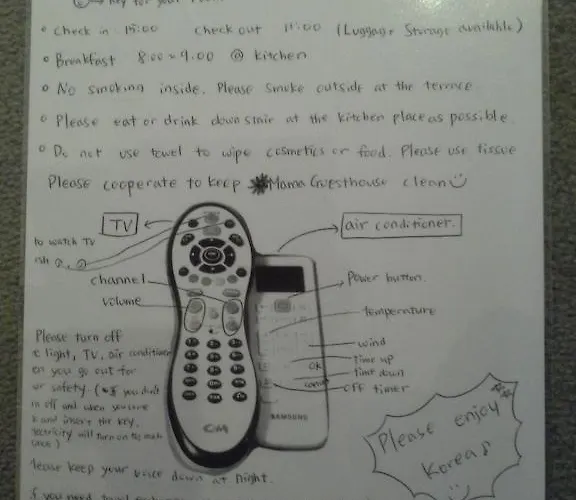 key for your
• Check in 15:00 Check out 11:00 (Luggage Storage available)
• Breakfast 8:00~9:00 @ kitchen
• No smoking inside. Please smoke outside at the terence
• Please eat or drink down stair at the kitchen place as possible.
• Do not use towel to wipe cosmetics or food. Please use tissue
Please cooperate to keep Mama Guesthouse clean
TV
air conditioner.
to watch TV
channel
volume
Power button.
temperature
wind
time up
time down
off timer
OK
SAMSUNG
Please turn off
light, TV, air conditioner
en you go out for
ur safety. (*If you don't
n off and when you
k and insert the key,
ectricity will turn on
Please enjoy
Korea♪
Please keep your voice down at night.
if you need